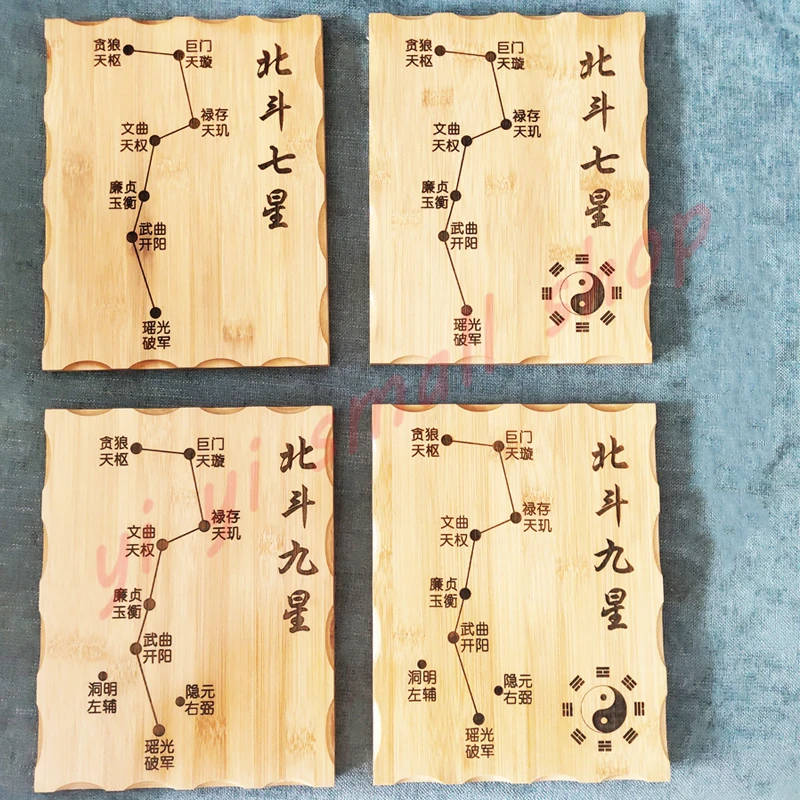 贪狼
天枢
巨门
天璇
禄存
天玑
文曲
天权
廉贞
玉衡
武曲
开阳
瑶光
破军
北斗七星
贪狼
天枢
巨门
天璇
禄存
天玑
文曲
天权
廉贞
玉衡
武曲
开阳
瑶光
破军
北斗七星
贪狼
天枢
巨门
天璇
禄存
天玑
文曲
天权
廉贞
玉衡
武曲
开阳
洞明
左辅
隐元
右弼
瑶光
破军
北斗九星
贪狼
天枢
巨门
天璇
禄存
天玑
文曲
天权
廉贞
玉衡
武曲
开阳
洞明
左辅
隐元
右弼
瑶光
破军
北斗九星
yi yi small shop